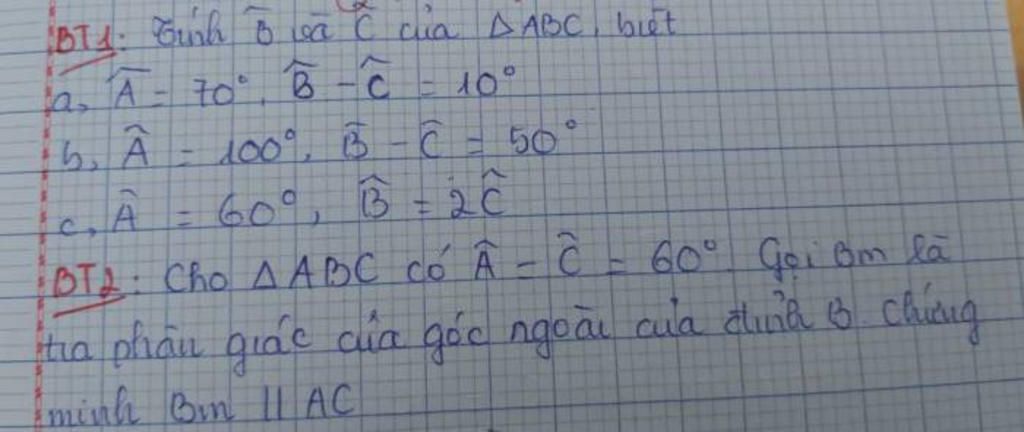 BT1: Tính B̂ và Ĉ của ΔABC, biết
a, Â = 70°, B̂ - Ĉ = 10°
b, Â = 100°, B̂ - Ĉ = 50°
c, Â = 60°, B̂ = 2Ĉ
BT2: Cho ΔABC có Â = Ĉ = 60° Gọi Bm là
tia phân giác của góc ngoài của đỉnh B. chứng
minh Bm // AC